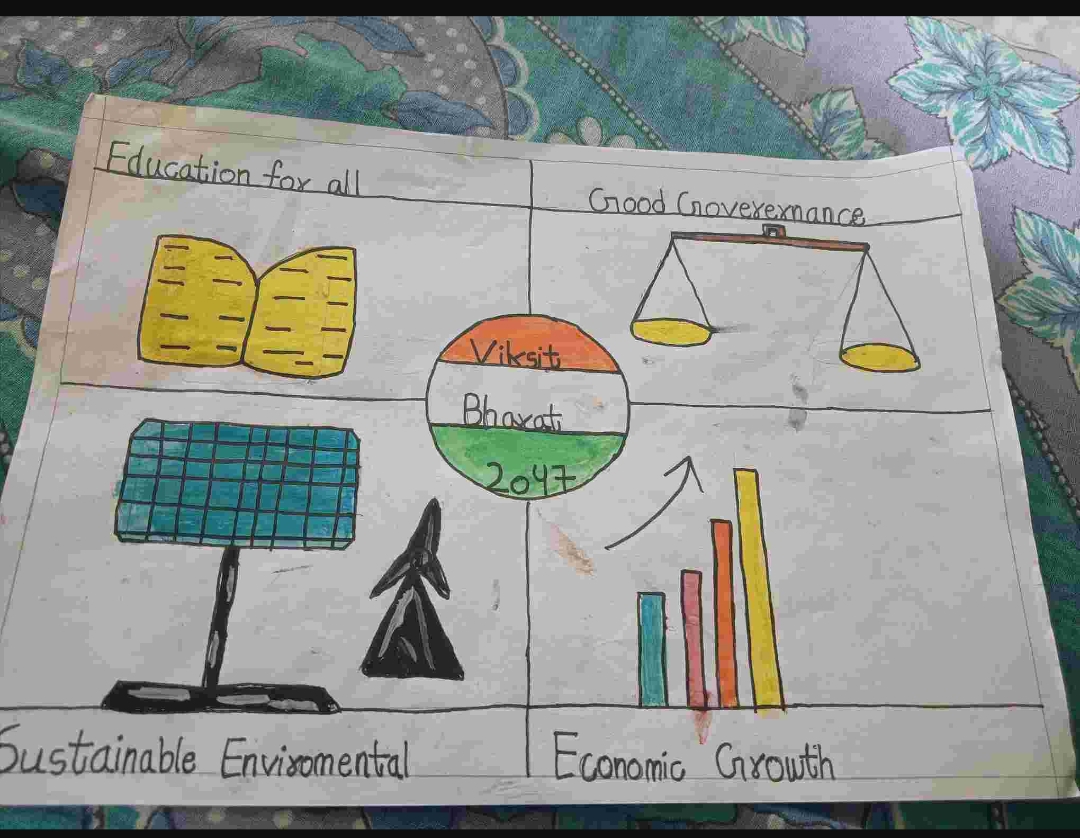 Education for all
Good Goverernance
Viksit
Bharat
2047
Sustainable Enviromental
Economic Growth